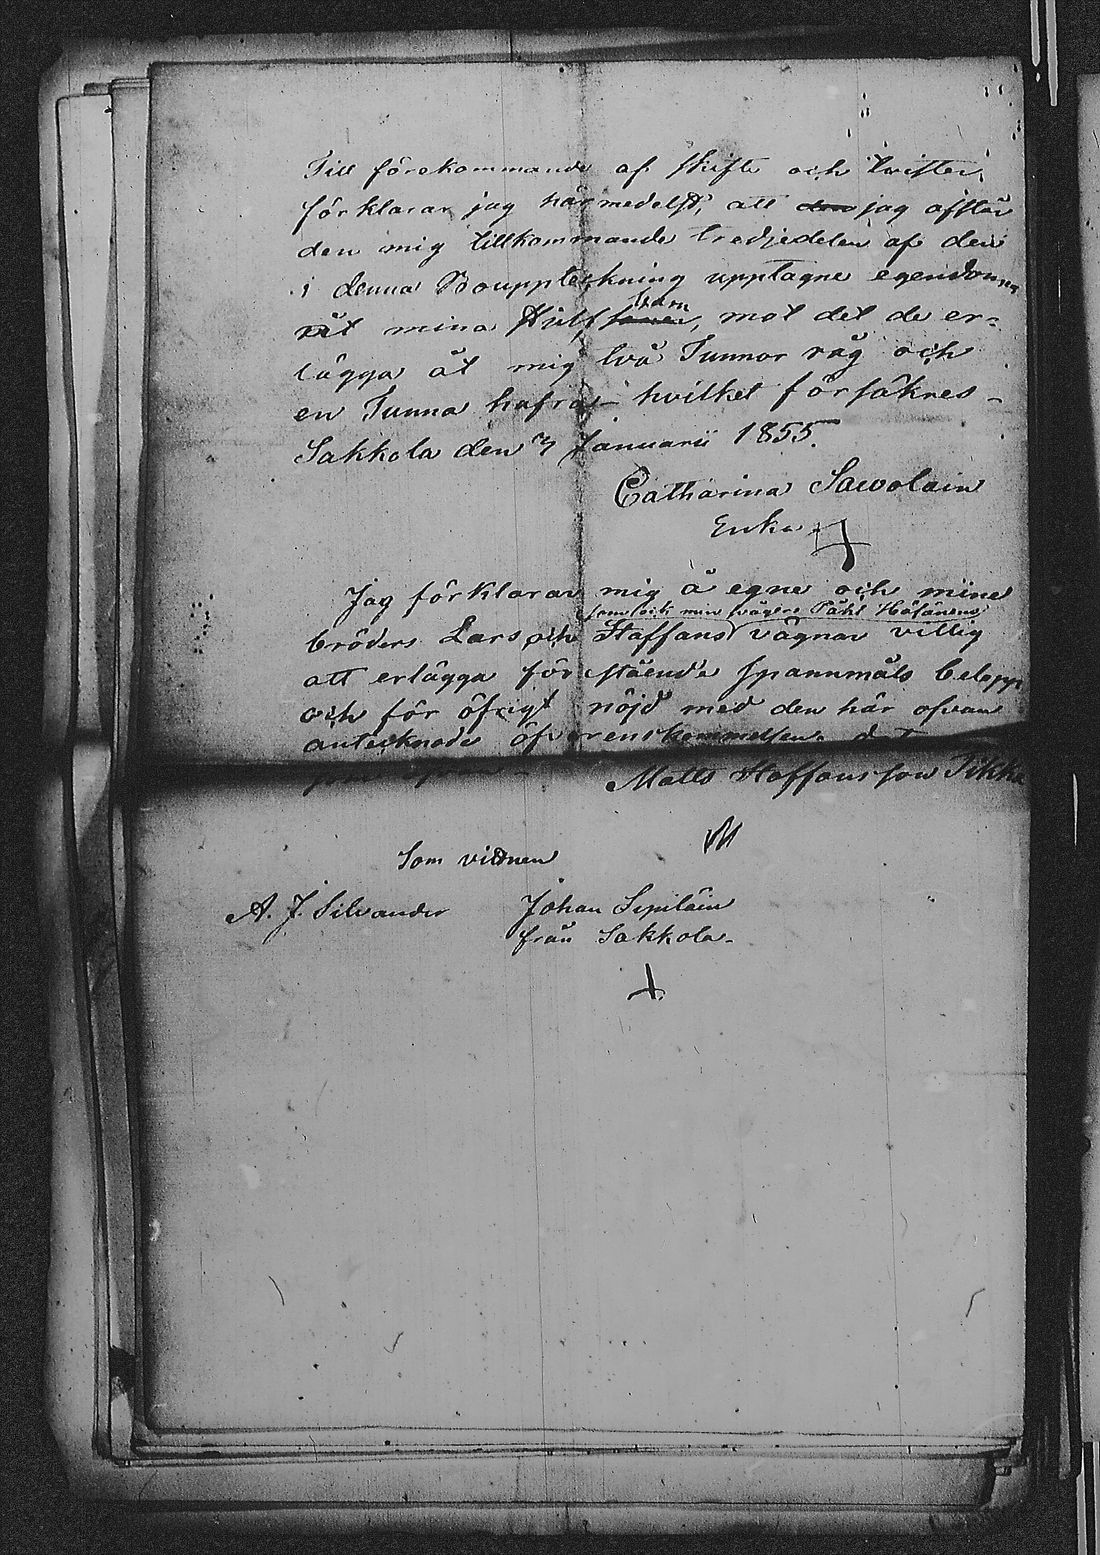 Till förekommande af skifte och tvister,
förklarar jag härmedelst, att den jag afstår
den mig tillkommande tredjedelen af den
i denna Bouppteckning upptagne egendomen
åt mina Stuf barn, mot det de er-
lägga åt mig två Tunnor råg och
en Tunna hafra - hvilket försäkres -
Sakkola den 7 Januarii 1855.
Catharina Sawolain
Enka
Jag förklarar mig å egne och mine
som ock min svågers Påhl Häsänens
bröders Lars och Staffans vägnar villig
att erlägga förstående spannmåls belopp
och för öfrigt nöjd med den här ofvan
antecknade öfverenskommelsen
som ofvan -
Matts Staffansson Tikka
M
Som vittnen
A. J. Silvander Johan Sipiläin
från Sakkola.